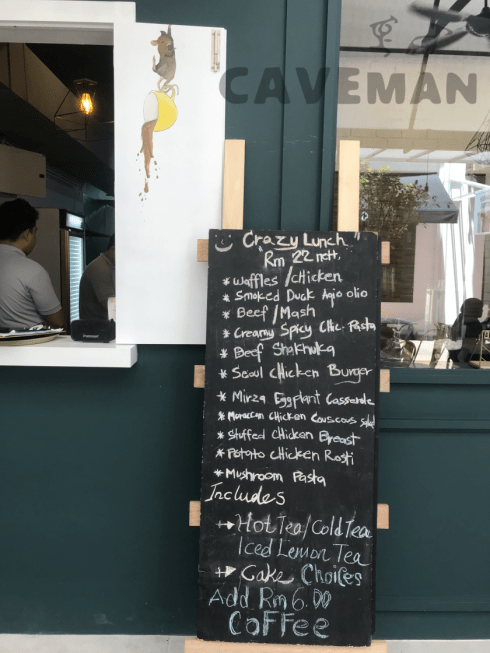 CAVEMAN
"Crazy Lunch"
Rm 22 nett.
* Waffles / Chicken
* Smoked Duck Agio olio
* Beef / Mash
* Creamy Spicy Chic. Pasta
* Beef Shakhuka
* Seoul Chicken Burger
* Mirza Eggplant Casserole
* Moroccan Chicken Couscous salad
* Stuffed Chicken Breast
* Potato Chicken Rosti
* Mushroom Pasta
Includes
→ Hot Tea/Cold Tea
Iced Lemon Tea
→ Cake Choices
Add Rm 6.00
Coffee